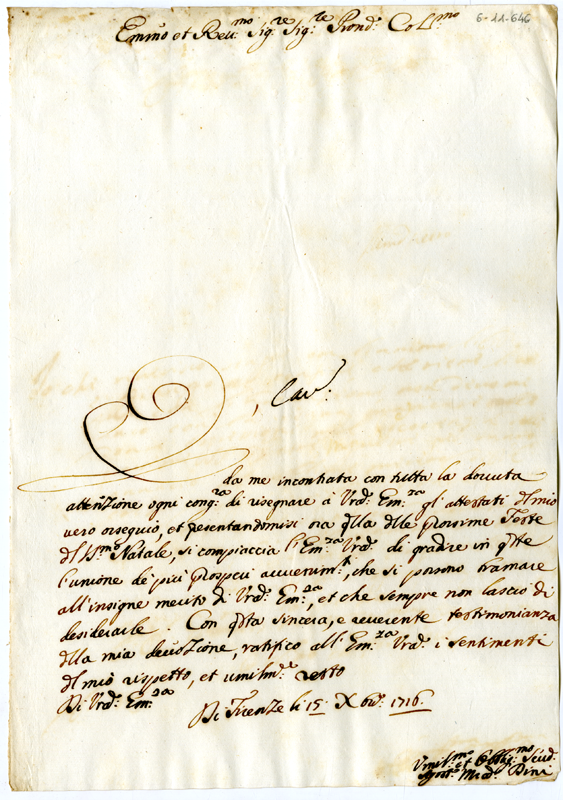 6-11-646
Em̃o et Reu:mo Sig:re Sig:re Prond: Col:mo
, Cau:
da me incontrata con tutta la douuta
attenz̃ione ogni cong:ra di rasegnare à Vrã: Em:za gl'attestati d'l mio
uero ossequio, et presentandomisi ora q'lla d'lle prossime Feste
d'l S:mo Natale, si compiaccia l'Em:za Vrã: di gradire in q'ste
l'unione de' più prosperi auuenim:ti, che si possono bramare
all'insigne merito di Vrã: Em:za, et che sempre non lascio di
desiderarle. Con q'sta sincera, e reuerente testimonianza
d'lla mia deuozione, ratifico all'Em:za Vrã: i sentimenti
d'l mio rispetto, et umilm:te resto
Di Vrã: Em:za
Di Firenze li 15 Xbre: 1716.
Vmil:mo et Obblig:mo Seru:
Dini